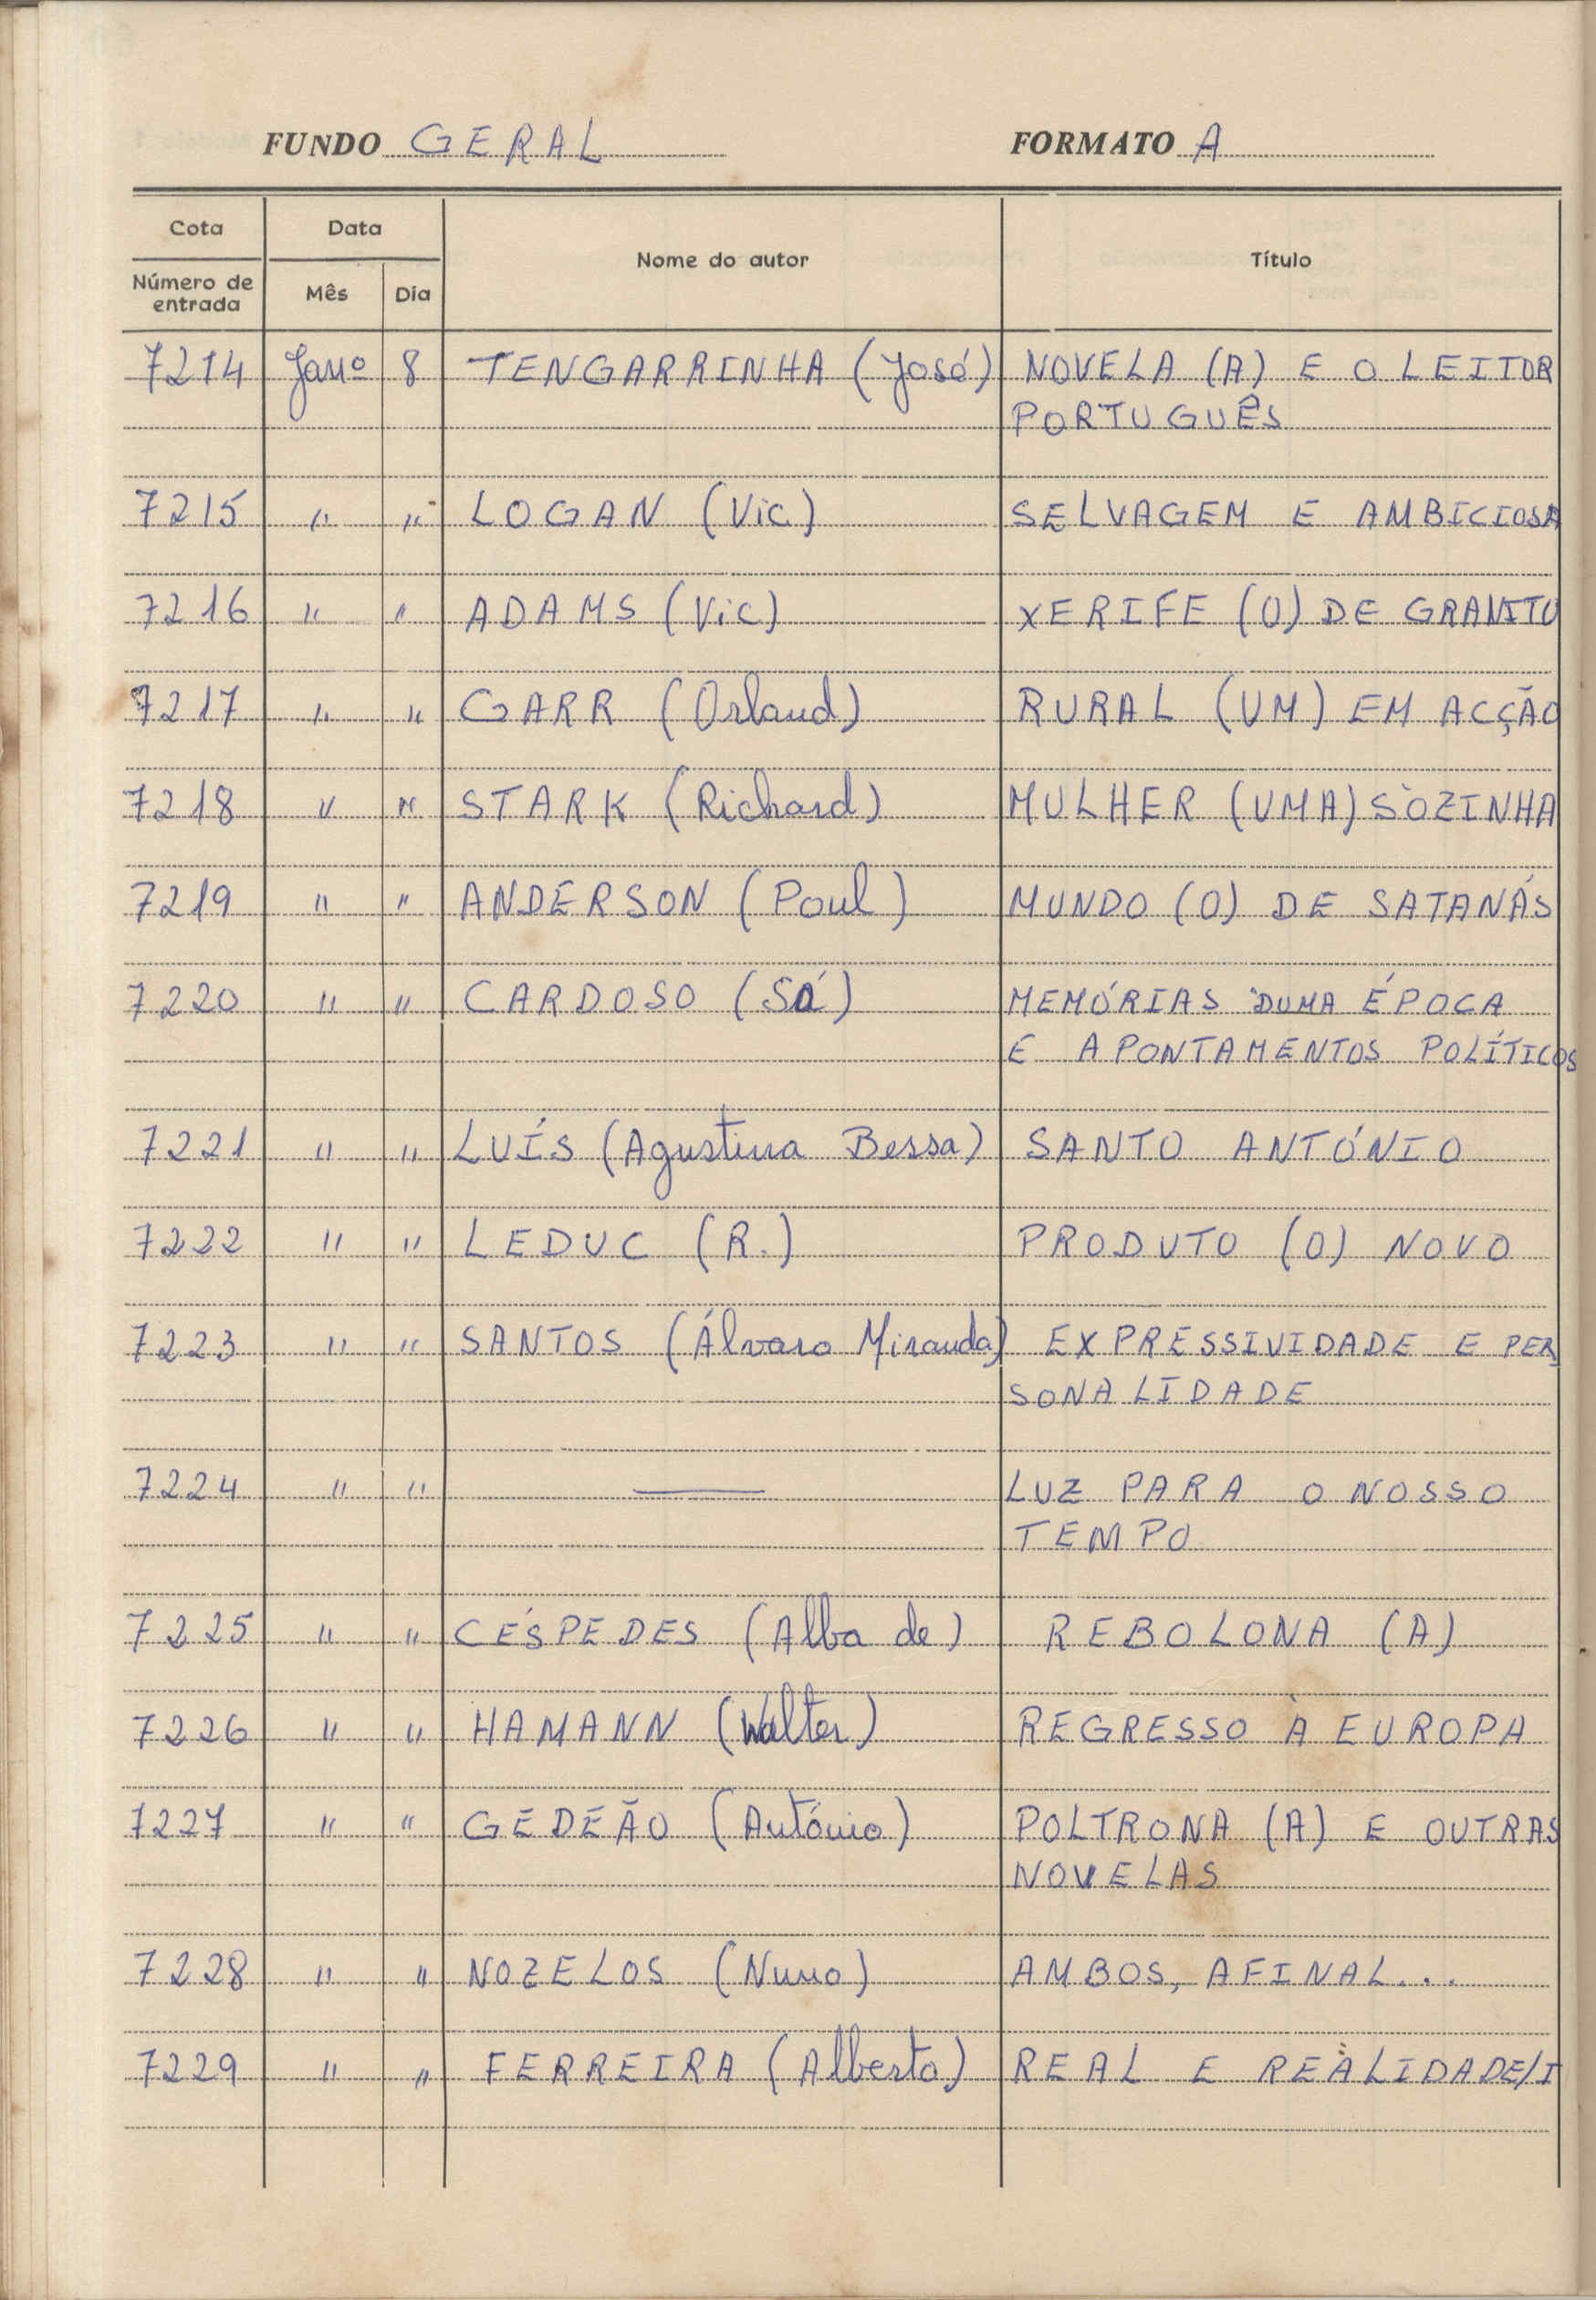 FUNDO GERAL FORMATO A
Cota Data Nome do autor Título
Número de entrada Mês Dia
7214 Janº 8 TENGARRINHA (José) NOVELA (A) E O LEITOR
PORTUGUÊS
7215 " " LOGAN (Vic) SELVAGEM E AMBICIOSA
7216 " " ADAMS (Vic) XERIFE (O) DE GRANITO
7217 " " GARR (Orland) RURAL (UM) EM ACÇÃO
7218 " " STARK (Richard) MULHER (UMA) SÒZINHA
7219 " " ANDERSON (Poul) MUNDO (O) DE SATANÁS
7220 " " CARDOSO (Sá) MEMÓRIAS DUMA ÉPOCA
E APONTAMENTOS POLÍTICOS
7221 " " LUÍS (Agustina Bessa) SANTO ANTÓNIO
7222 " " LEDUC (R.) PRODUTO (O) NOVO
7223 " " SANTOS (Álvaro Miranda) EXPRESSIVIDADE E PER
SONALIDADE
7224 " " — LUZ PARA O NOSSO
TEMPO
7225 " " CÉSPEDES (Alba de) REBOLONA (A)
7226 " " HAMANN (Walter) REGRESSO À EUROPA
7227 " " GEDEÃO (António) POLTRONA (A) E OUTRAS
NOVELAS
7228 " " NOZELOS (Nuno) AMBOS, AFINAL...
7229 " " FERREIRA (Alberto) REAL E REALIDADE/I